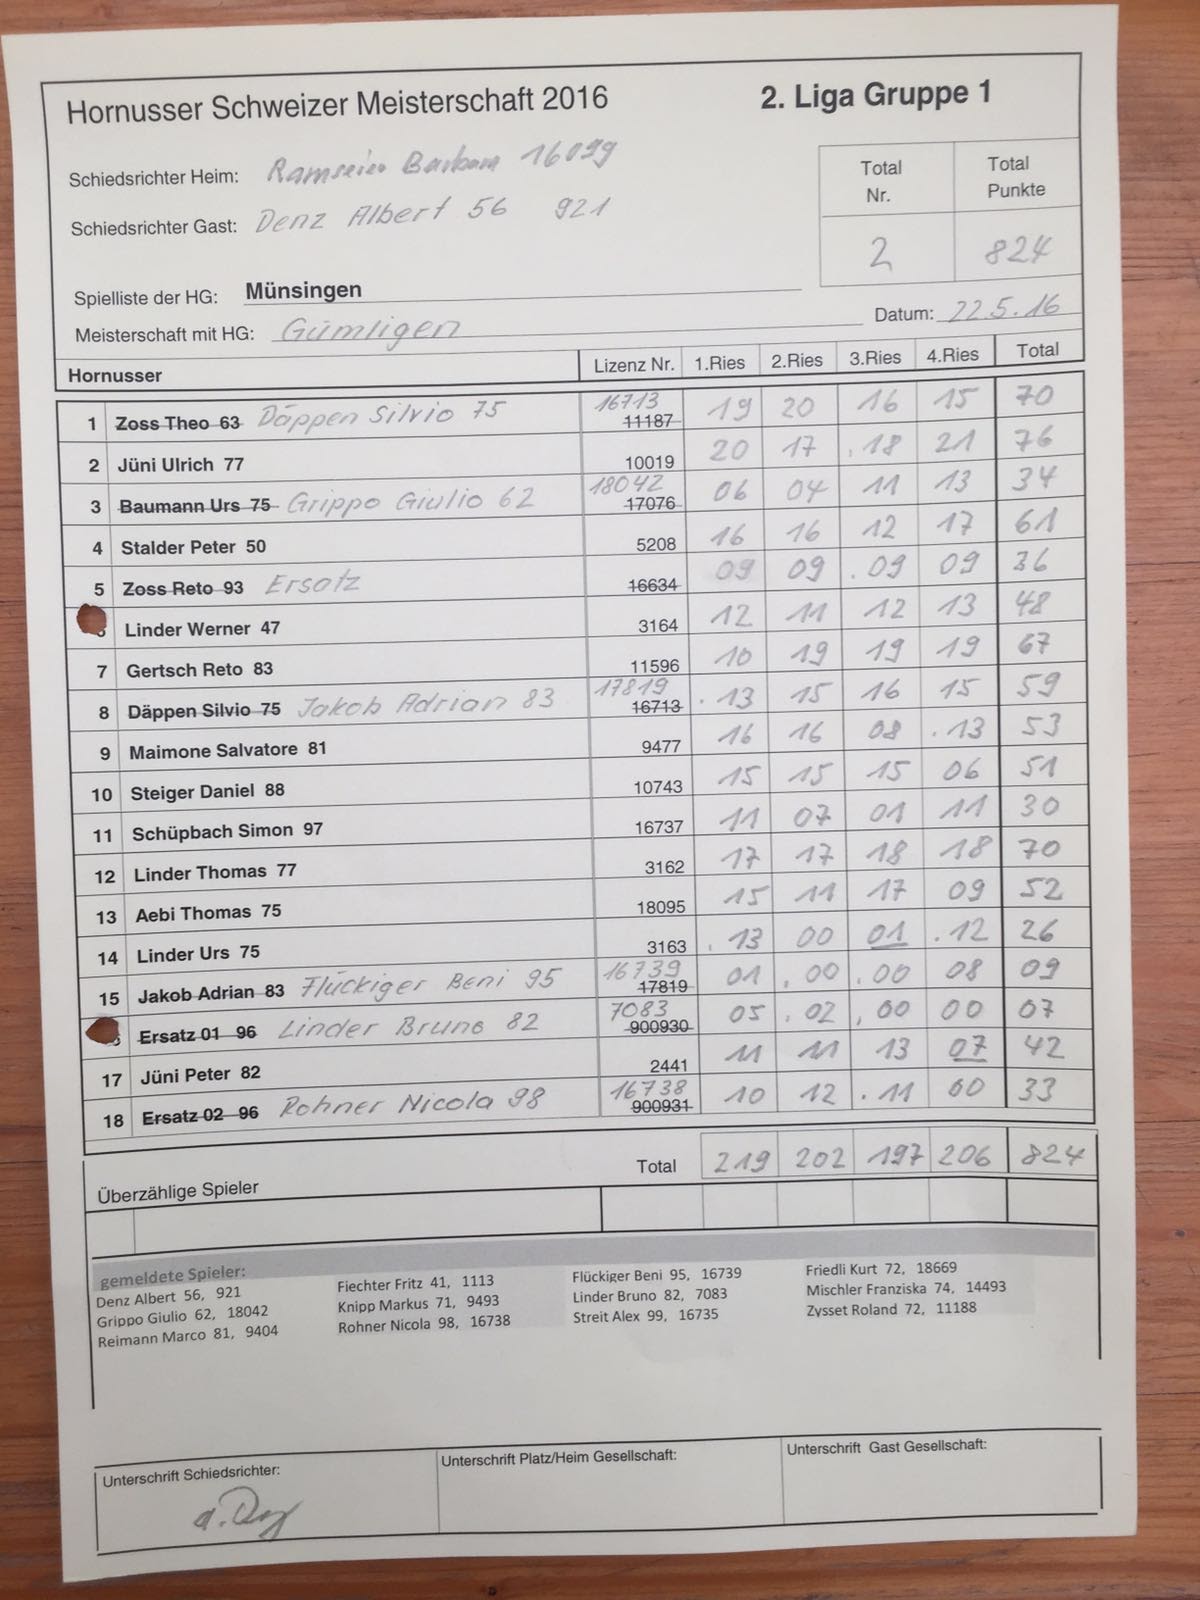 Hornusser Schweizer Meisterschaft 2016 2. Liga Gruppe 1
Schiedsrichter Heim: Ramseier Barbara 16099
Schiedsrichter Gast: Denz Albert 56 921
Total Nr. Total Punkte
2 824
Spielliste der HG: Münsingen
Meisterschaft mit HG: Gümligen Datum: 22.5.16
Hornusser Lizenz Nr. 1.Ries 2.Ries 3.Ries 4.Ries Total
1 Zoss Theo 63 Däppen Silvio 75 16713 11187 19 20 16 15 70
2 Jüni Ulrich 77 10019 20 17 .18 21 76
3 Baumann Urs 75 Grippo Giulio 62 18042 17076 06 04 11 13 34
4 Stalder Peter 50 5208 16 16 12 17 61
5 Zoss Reto 93 Ersatz 16634 09 09 .09 09 36
Linder Werner 47 3164 12 11 12 13 48
7 Gertsch Reto 83 11596 10 19 19 19 67
8 Däppen Silvio 75 Jakob Adrian 83 17819 16713 .13 15 16 15 59
9 Maimone Salvatore 81 9477 16 16 08 .13 53
10 Steiger Daniel 88 10743 15 15 15 06 51
11 Schüpbach Simon 97 16737 11 07 01 11 30
12 Linder Thomas 77 3162 17 17 18 18 70
13 Aebi Thomas 75 18095 15 11 17 09 52
14 Linder Urs 75 3163 .13 00 01 .12 26
15 Jakob Adrian 83 Flückiger Beni 95 16739 17819 01 .00 .00 08 09
Ersatz 01 96 Linder Bruno 82 7083 900930 05 .02 .00 00 07
17 Jüni Peter 82 2441 11 11 13 07 42
18 Ersatz 02 96 Rohner Nicola 98 16738 900931 10 12 .11 00 33
Total 219 202 197 206 824
Überzählige Spieler
gemeldete Spieler:
Denz Albert 56, 921
Grippo Giulio 62, 18042
Reimann Marco 81, 9404
Fiechter Fritz 41, 1113
Knipp Markus 71, 9493
Rohner Nicola 98, 16738
Flückiger Beni 95, 16739
Linder Bruno 82, 7083
Streit Alex 99, 16735
Friedli Kurt 72, 18669
Mischler Franziska 74, 14493
Zysset Roland 72, 11188
Unterschrift Schiedsrichter: Unterschrift Platz/Heim Gesellschaft: Unterschrift Gast Gesellschaft: